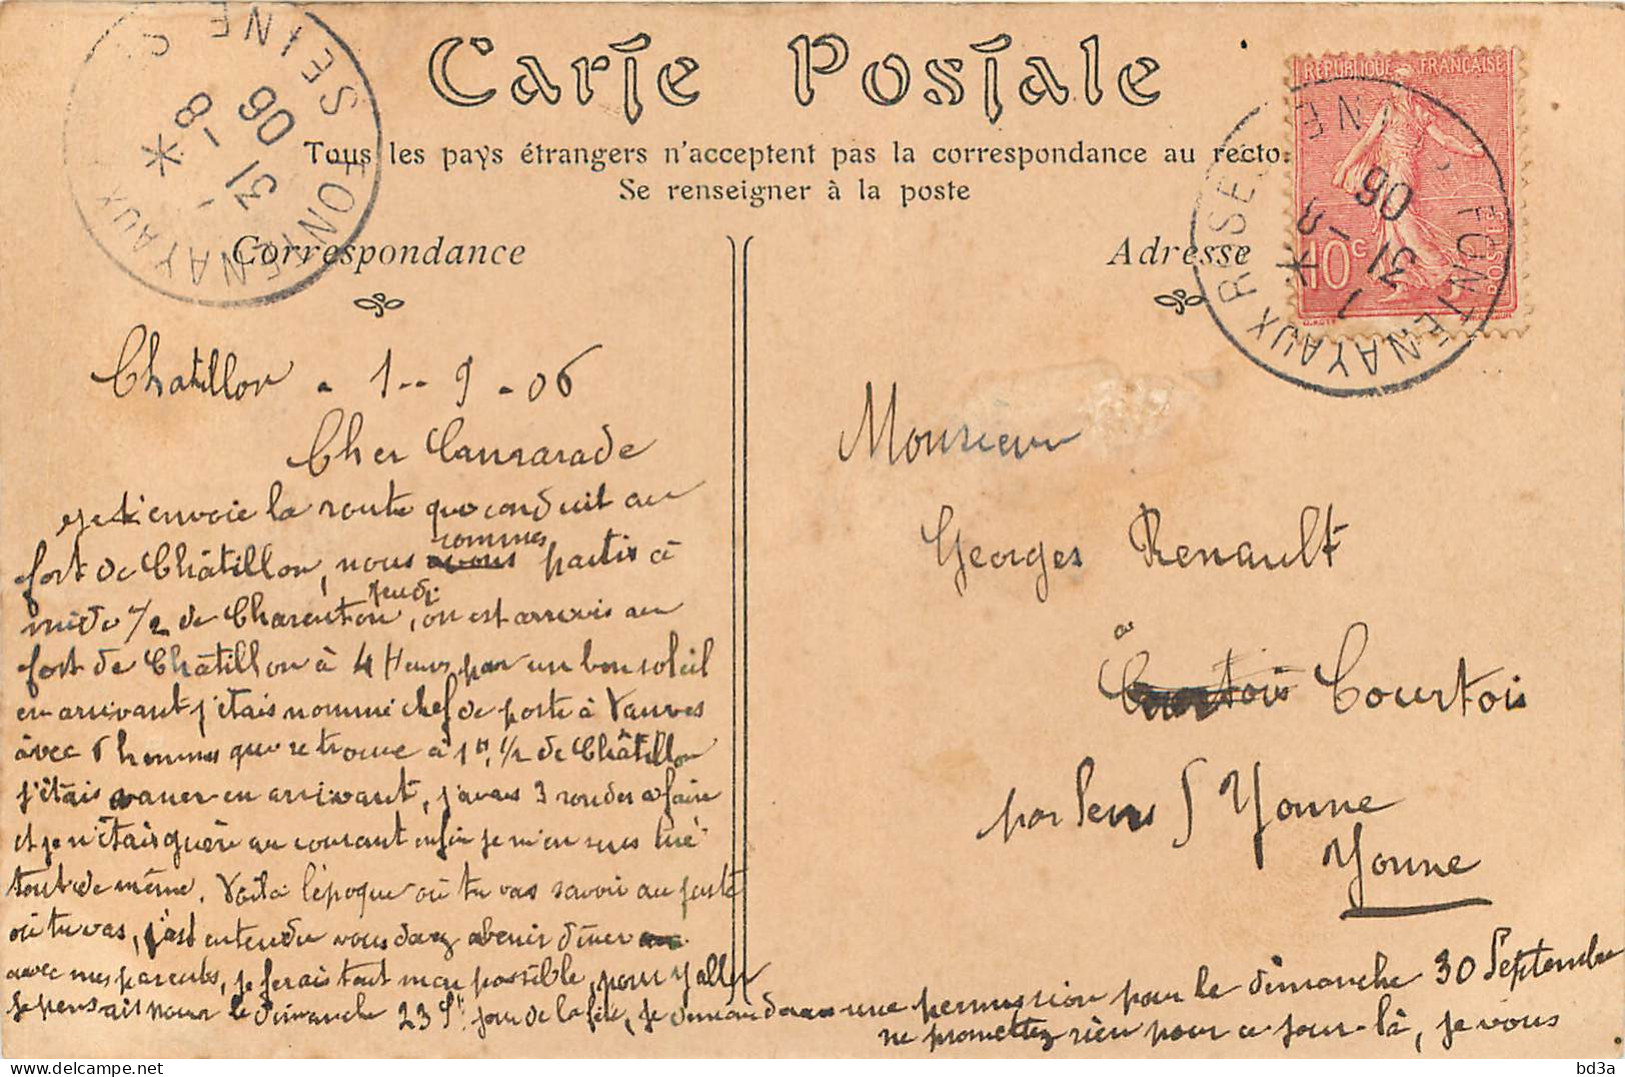 Carte Postale
Tous les pays étrangers n'acceptent pas la correspondance au recto.
Se renseigner à la poste
Correspondance
Adresse
FONTENAY AUX ROSES SEINE
* 8 - 31 - 06
RÉPUBLIQUE FRANÇAISE
10c
POSTES
FONTENAY AUX ROSES SEINE
31 06
Chatillon - 1 - 9 - 06
Cher Camarade
je t'envoie la route qui conduit au
fort de Châtillon, nous sommes partis à
midi 1/2 de Charenton jeudi, on est arrivés au
fort de Châtillon à 4 Heures par un bon soleil
en arrivant j'étais nommé chef de poste à Vanves
avec 6 hommes qui se trouve à 1H 1/2 de Châtillon
j'étais vaner en arrivant, j'avais 3 rondes a faire
et je n'étais guère au courant enfin je m'en suis tiré
tout de même. Voilà l'époque où tu vas savoir au juste
où tu vas, j'ai entendu vous dire avenir diner
avec mes parents, je ferais tout mon possible, pour y aller
je pensais pour le Dimanche 23 St jour de la fête, je demanderai une permission pour le dimanche 30 Septembre
ne promettez rien pour ce jour-là, je vous
Monsieur
Georges Renault
à
Courtois
par Sens s/ Yonne
Yonne
bd3a